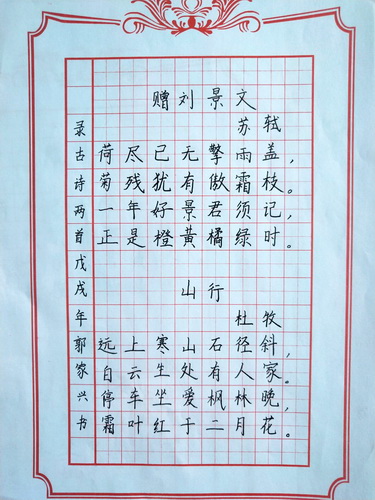 赠刘景文
苏轼
荷尽已无擎雨盖，
菊残犹有傲霜枝。
一年好景君须记，
正是橙黄橘绿时。
山行
杜牧
远上寒山石径斜，
白云生处有人家。
停车坐爱枫林晚，
霜叶红于二月花。
录古诗两首戊戌年郭家兴书